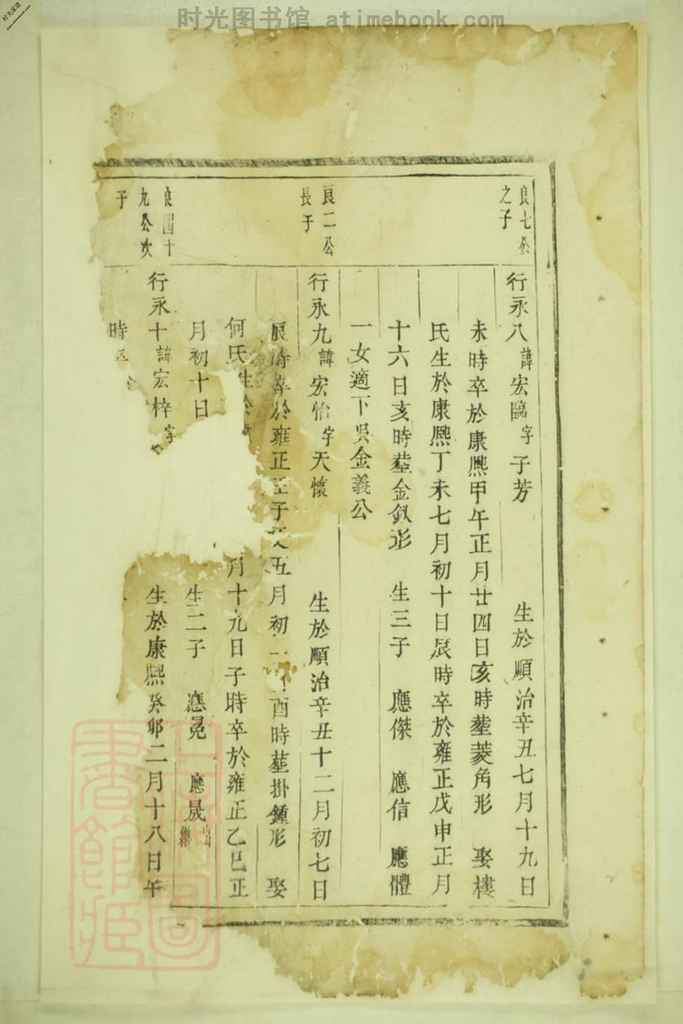 时光图书馆 atimebook.com
良七公
之子
行永八諱宏臨字子芳 生於順治辛丑七月十九日
未時卒於康熙甲午正月廿四日亥時塟菱角形 娶樓
氏生於康熙丁未七月初十日辰時卒於雍正戊申正月
十六日亥時塟金釵形 生三子 應傑 應信 應體
一女適下吳金義公
良二公
長子
行永九諱宏怡字天懷 生於順治辛丑十二月初七日
辰時卒於雍正壬子 五月初 酉時塟掛鍾形 娶
何氏生於 月十九日子時卒於雍正乙巳正
月初十日 生二子 應晃 應晟 出繼
良四十
九公次
子
行永十諱宏梓字 生於康熙癸卯二月十八日午
時
圖書館藏